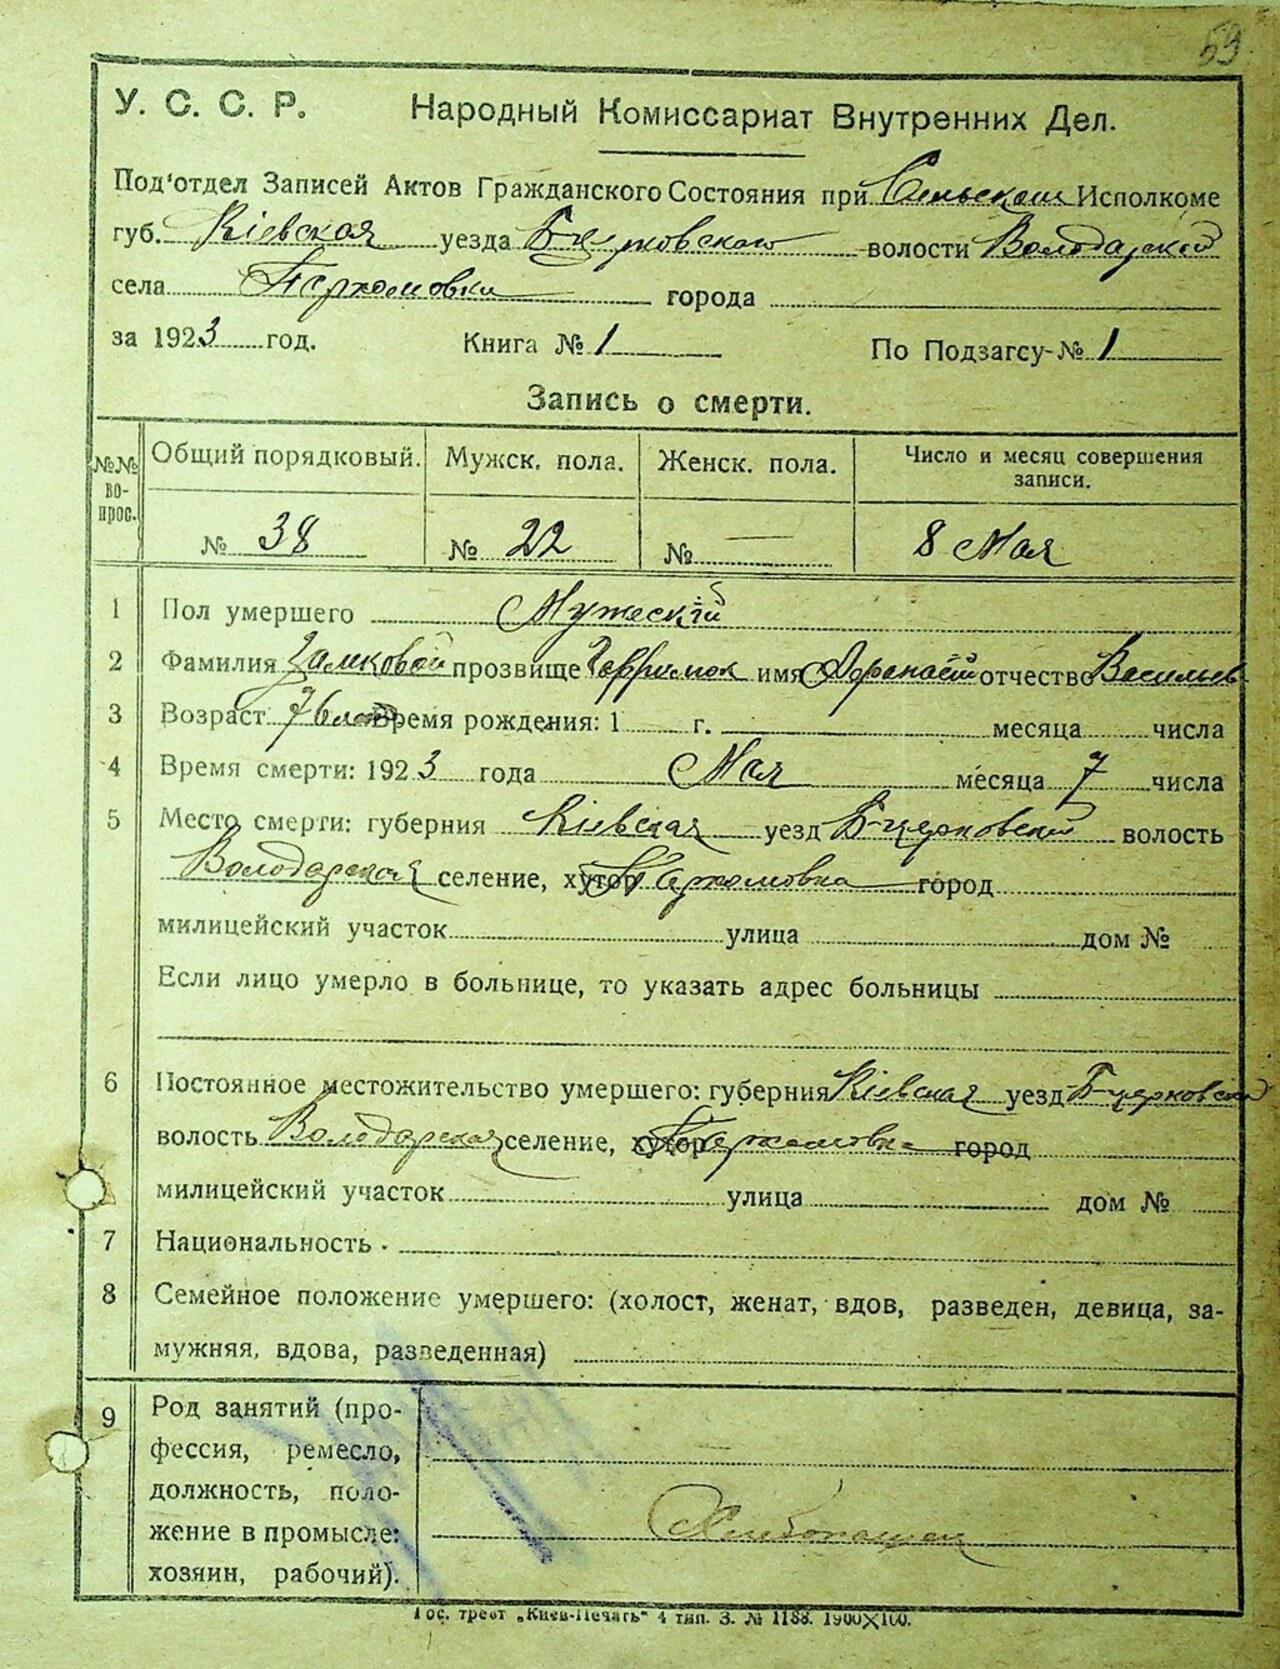 59
У. С. С. Р. Народный Комиссариат Внутренних Дел.
Под'отдел Записей Актов Гражданского Состояния при Сельском Исполкоме
губ. Кіевская уезда Б-Церковского волости Володарской
села Пархомовки города
за 1923 год. Книга № 1 По Подзагсу-№ 1
Запись о смерти.
№№ вопрос. Общий порядковый. Мужск. пола. Женск. пола. Число и месяц совершения записи.
№ 38 № 22 № — 8 Мая
1 Пол умершего Мужескій
2 Фамилия Замковой прозвище имя отчество Васильев
3 Возраст 76 лет время рождения: 1 г. месяца числа
4 Время смерти: 1923 года Мая месяца 7 числа
5 Место смерти: губерния Кіевская уезд Б-церковский волость
Володарская селение, хутор Пархомовка город
милицейский участок улица дом №
Если лицо умерло в больнице, то указать адрес больницы
6 Постоянное местожительство умершего: губерния Кіевская уезд Б-церковский
волость Володарская селение, хутор Пархомовка город
милицейский участок улица дом №
7 Национальность
8 Семейное положение умершего: (холост, женат, вдов, разведен, девица, за-
мужняя, вдова, разведенная)
9 Род занятий (про-
фессия, ремесло,
должность, поло-
жение в промысле:
хозяин, рабочий).
Хлибопашец
Гос. трест „Киев-Печать" 4 тип. З. № 1188. 1900X100.